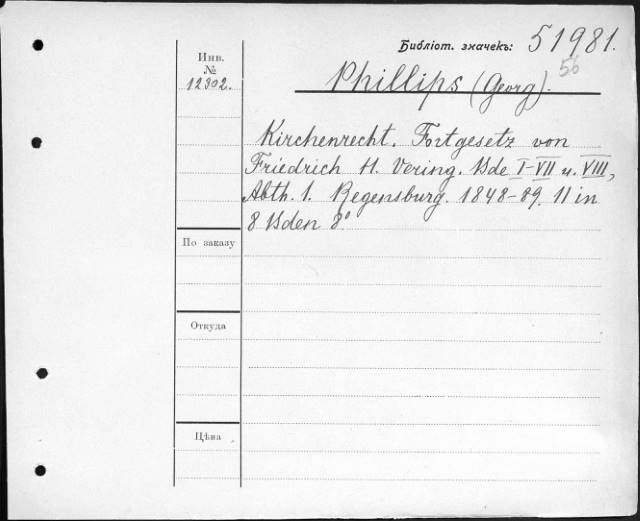 Библіот. значекъ: 51981.
56
Инв.
№
12302.
Phillips (Georg).
Kirchenrecht. Fortgesetz von
Friedrich H. Vering. Bde I-VII u. VIII,
Abth. 1. Regensburg. 1848-89. 11 in
8 Bden 8°
По заказу
Откуда
Цѣна